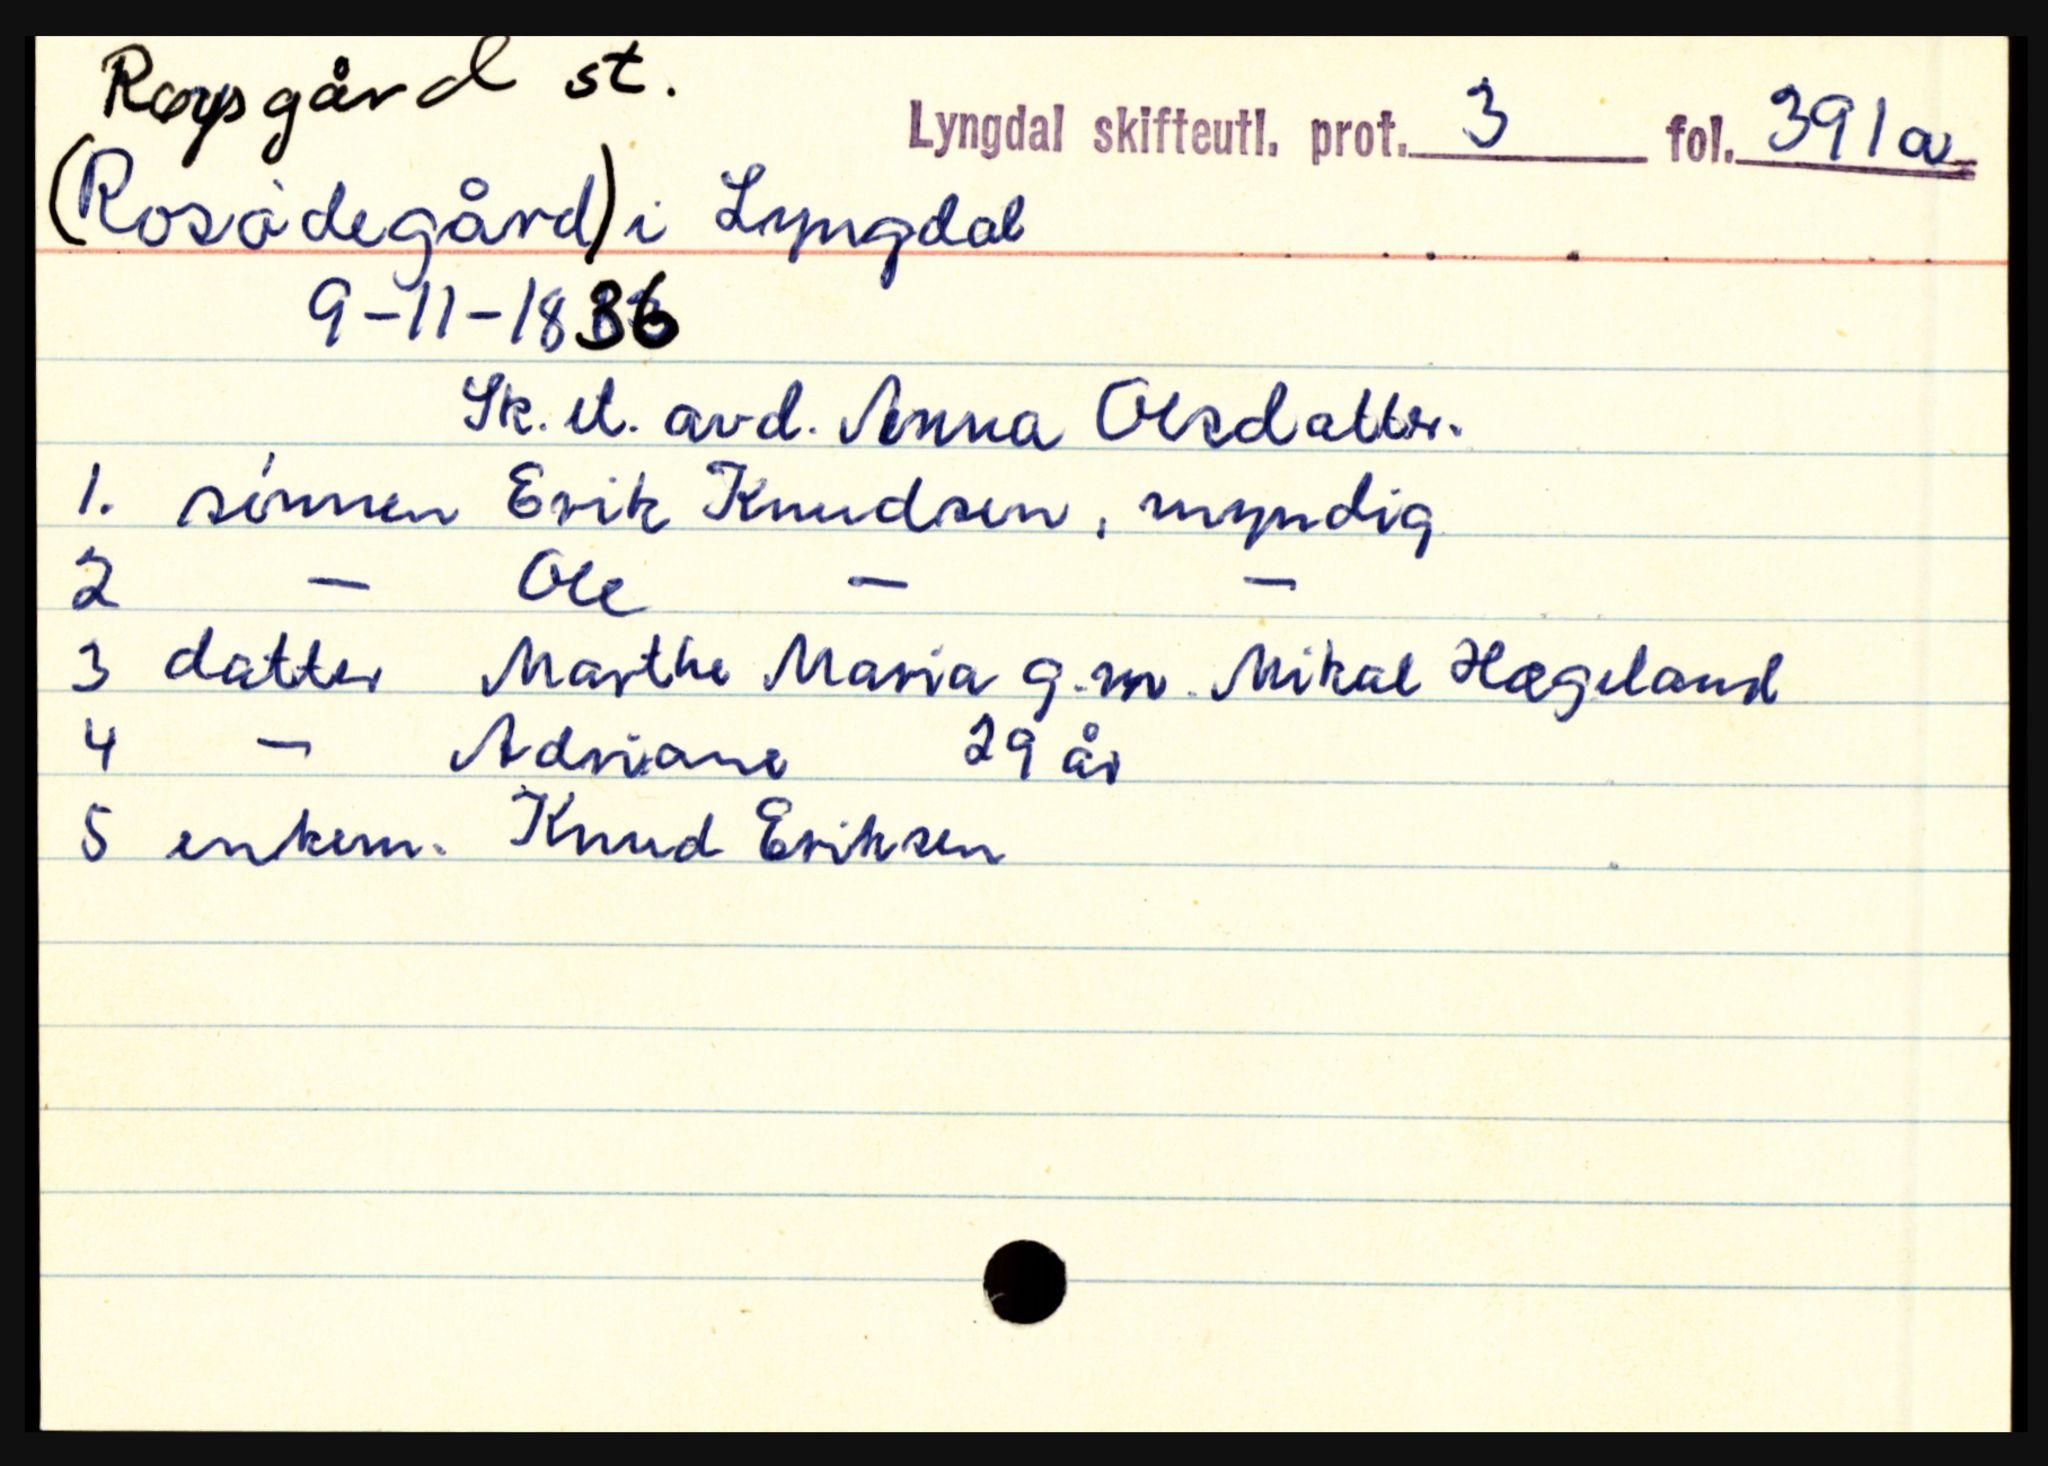 Røysgård st.
Lyngdal skifteutl. prot. 3 fol. 391a
(Rosådegård) i Lyngdal
9-11-1836
Sk. et. avd. Anna Olsdatter.
1. sønnen Erik Knudsen, myndig
2 — Ole — —
3 datter Marthe Maria g.m. Mikal Hægeland
4 — Adriane 29 år
5 enkem. Knud Eriksen